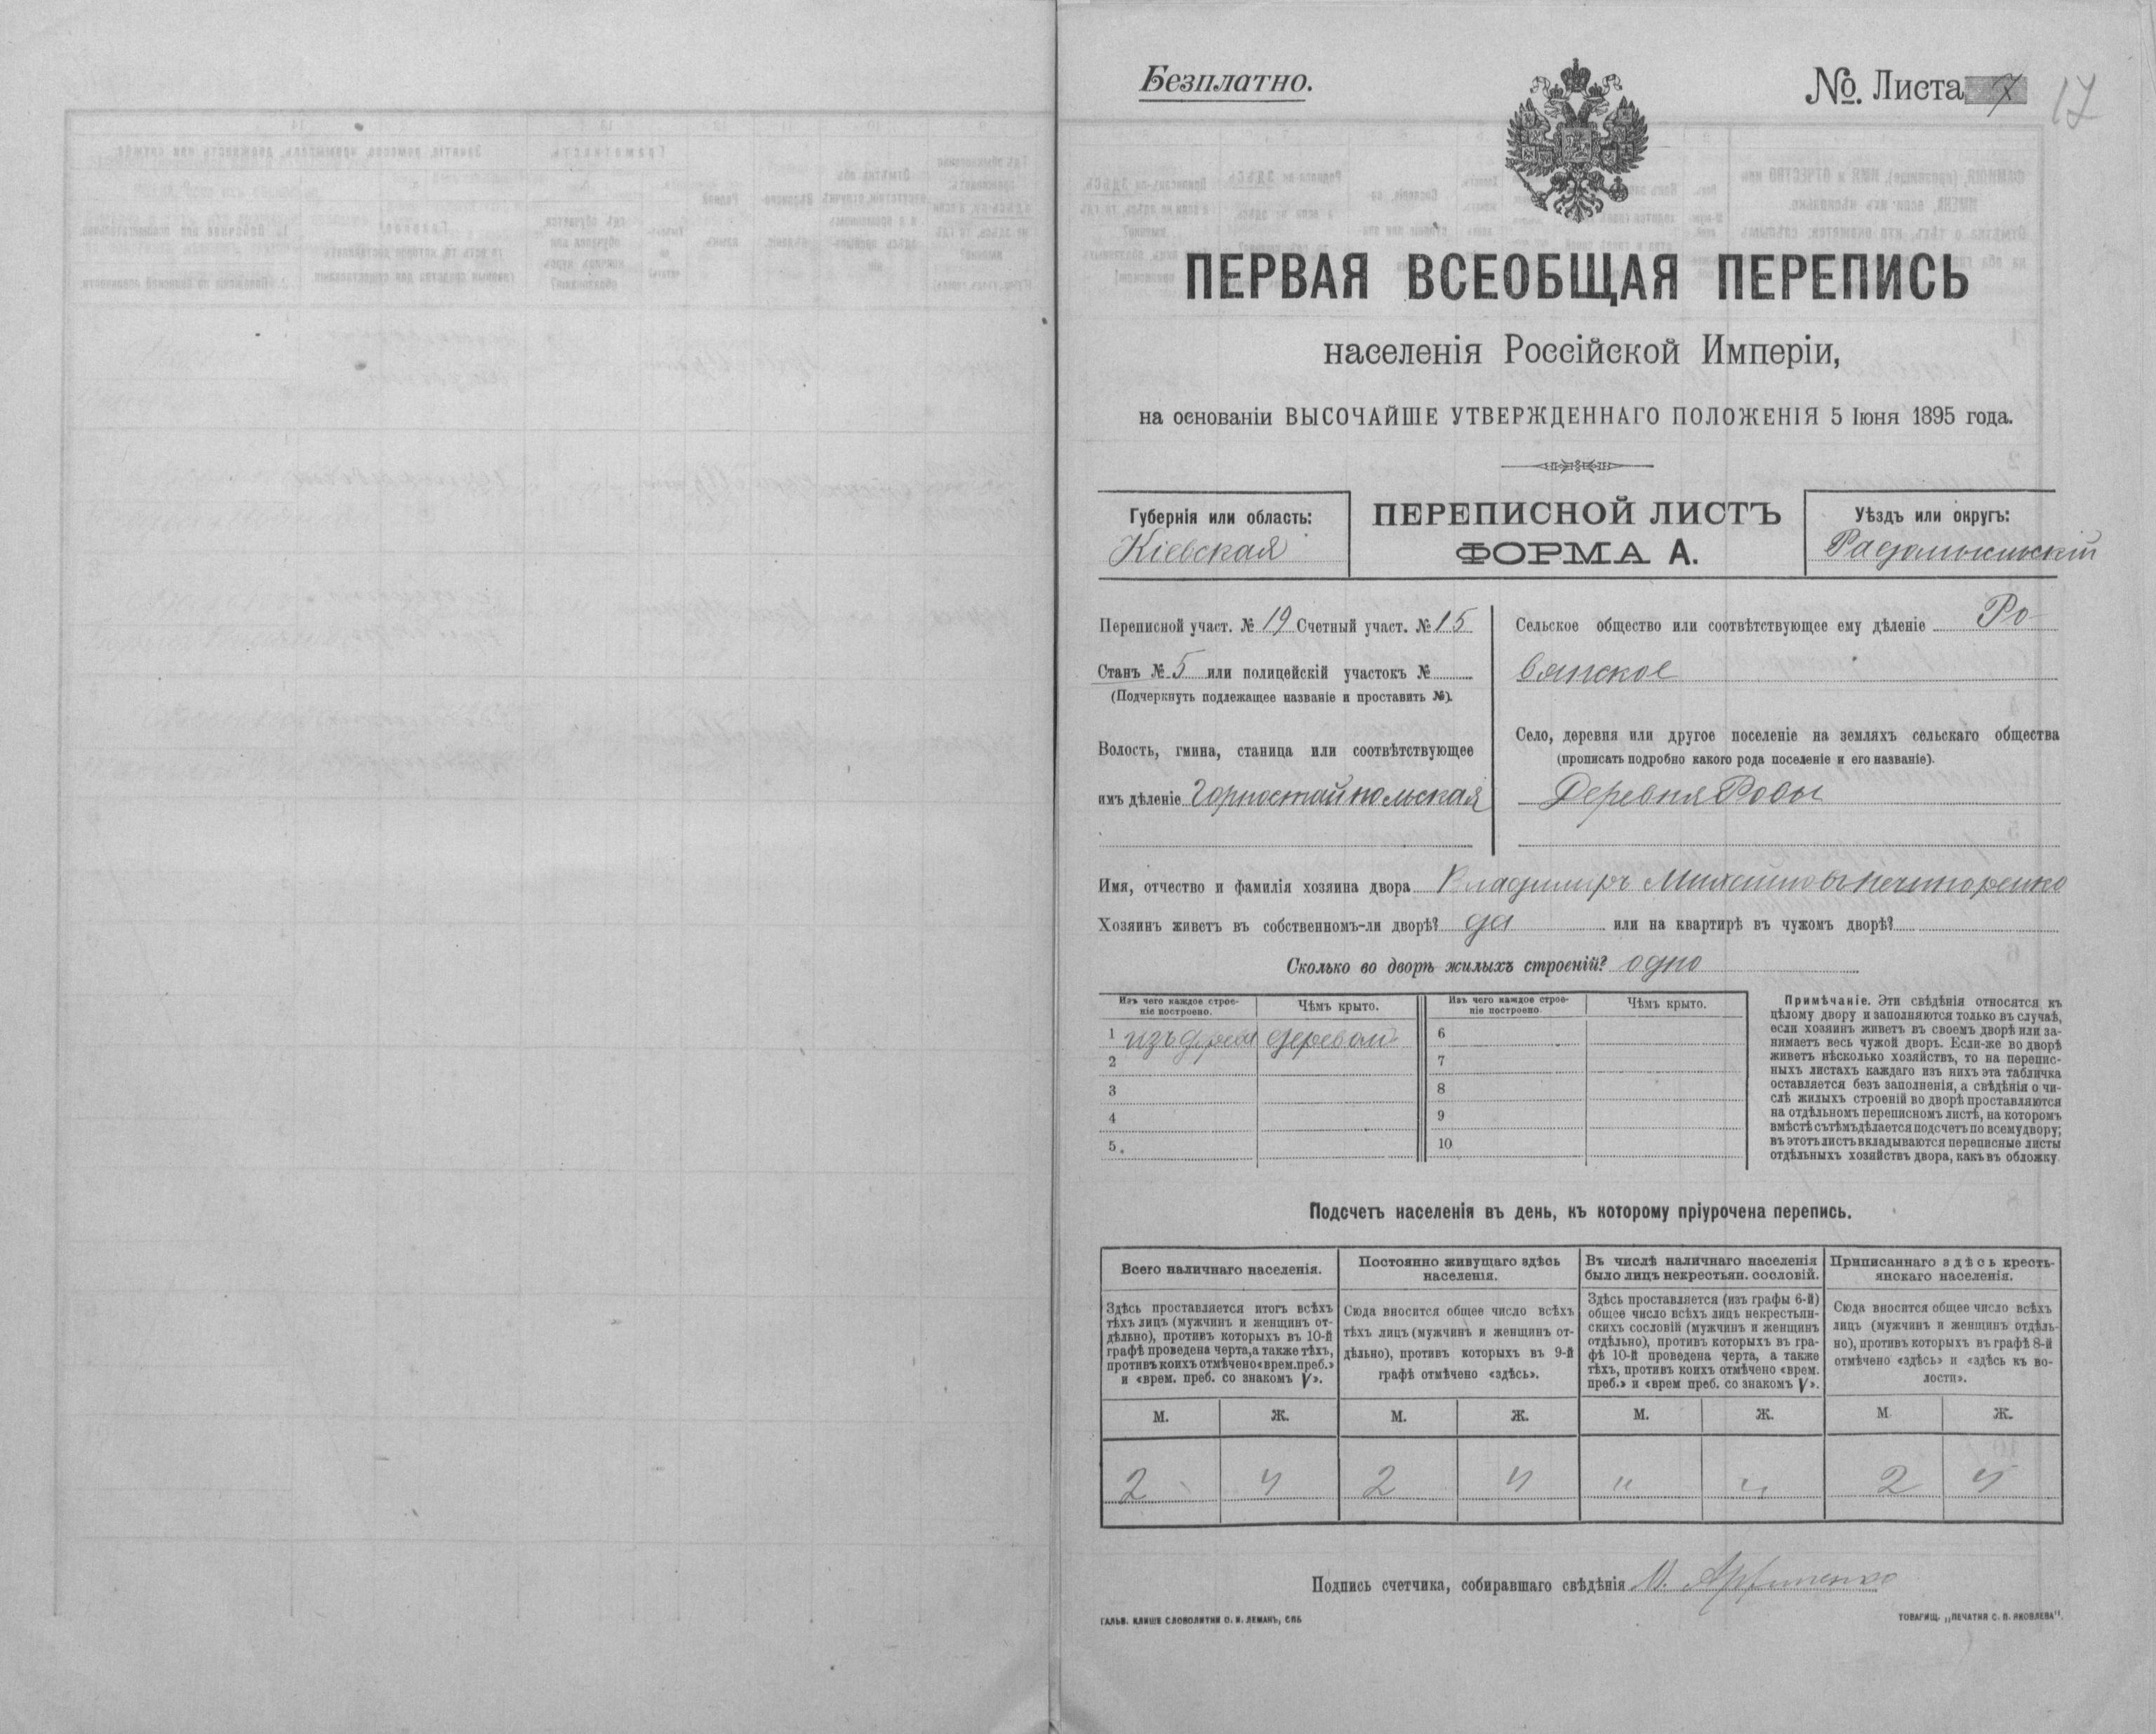 Безплатно.
№. Листа 7 17
ПЕРВАЯ ВСЕОБЩАЯ ПЕРЕПИСЬ
населенія Россійской Имперіи,
на основаніи ВЫСОЧАЙШЕ УТВЕРЖДЕННАГО ПОЛОЖЕНІЯ 5 Іюня 1895 года.
Губернія или область:
Кіевская
ПЕРЕПИСНОЙ ЛИСТЪ
ФОРМА А.
Уѣздъ или округъ:
Радомысльскій
Переписной участ. № 19 Счетный участ. № 15
Станъ № 5 или полицейскій участокъ №
(Подчеркнуть подлежащее названіе и проставить №).
Волость, гмина, станица или соотвѣтствующее
имъ дѣленіе Горностайпольская
Сельское общество или соотвѣтствующее ему дѣленіе Ро-
вянское
Село, деревня или другое поселеніе на земляхъ сельскаго общества
(прописать подробно какого рода поселеніе и его названіе).
Деревня Ровы
Имя, отчество и фамилія хозяина двора Владимиръ Михайловъ Нечипоренко
Хозяинъ живетъ въ собственномъ-ли дворѣ? да или на квартирѣ въ чужомъ дворѣ?
Сколько во дворѣ жилыхъ строеній? одно
Изъ чего каждое строе-
ніе построено.
Чѣмъ крыто.
Изъ чего каждое строе-
ніе построено.
Чѣмъ крыто.
1 изъ дерева деревом 6
2 7
3 8
4 9
5. 10
Примѣчаніе. Эти свѣдѣнія относятся къ
цѣлому двору и заполняются только въ случаѣ,
если хозяинъ живетъ въ своемъ дворѣ или за-
нимаетъ весь чужой дворъ. Если-же во дворѣ
живетъ нѣсколько хозяйствъ, то на перепис-
ныхъ листахъ каждаго изъ нихъ эта табличка
оставляется безъ заполненія, а свѣдѣнія о чи-
слѣ жилыхъ строеній во дворѣ проставляются
на отдѣльномъ переписномъ листѣ, на которомъ
вмѣстѣ съ тѣмъ дѣлается подсчетъ по всему двору;
въ этотъ листъ вкладываются переписные листы
отдѣльныхъ хозяйствъ двора, какъ въ обложку
Подсчетъ населенія въ день, къ которому пріурочена перепись.
Всего наличнаго населенія.
Здѣсь проставляется итогъ всѣхъ
тѣхъ лицъ (мужчинъ и женщинъ от-
дѣльно), противъ которыхъ въ 10-й
графѣ проведена черта, а также тѣхъ,
противъ коихъ отмѣчено «врем. преб.»
и «врем. преб. со знакомъ V».
Постоянно живущаго здѣсь
населенія.
Сюда вносится общее число всѣхъ
тѣхъ лицъ (мужчинъ и женщинъ от-
дѣльно), противъ которыхъ въ 9-й
графѣ отмѣчено «здѣсь».
Въ числѣ наличнаго населенія
было лицъ некрестьян. сословій.
Здѣсь проставляется (изъ графы 6-й)
общее число всѣхъ лицъ некрестьян-
скихъ сословій (мужчинъ и женщинъ
отдѣльно), противъ которыхъ въ гра-
фѣ 10-й проведена черта, а также
тѣхъ, противъ коихъ отмѣчено «врем.
преб.» и «врем преб. со знакомъ V».
Приписаннаго здѣсь кресть-
янскаго населенія.
Сюда вносится общее число всѣхъ
лицъ (мужчинъ и женщинъ отдѣль-
но), противъ которыхъ въ графѣ 8-й
отмѣчено «здѣсь» и «здѣсь къ во-
лости».
М. Ж. М. Ж. М. Ж. М. Ж.
2 4 2 4 " " 2 4
Подпись счетчика, собиравшаго свѣдѣнія
ГАЛЬВ. КЛИШЕ СЛОВОЛИТНИ О. И. ЛЕМАНЪ, СПБ
ТОВАРИЩ. „ПЕЧАТНЯ С. П. ЯКОВЛЕВА".